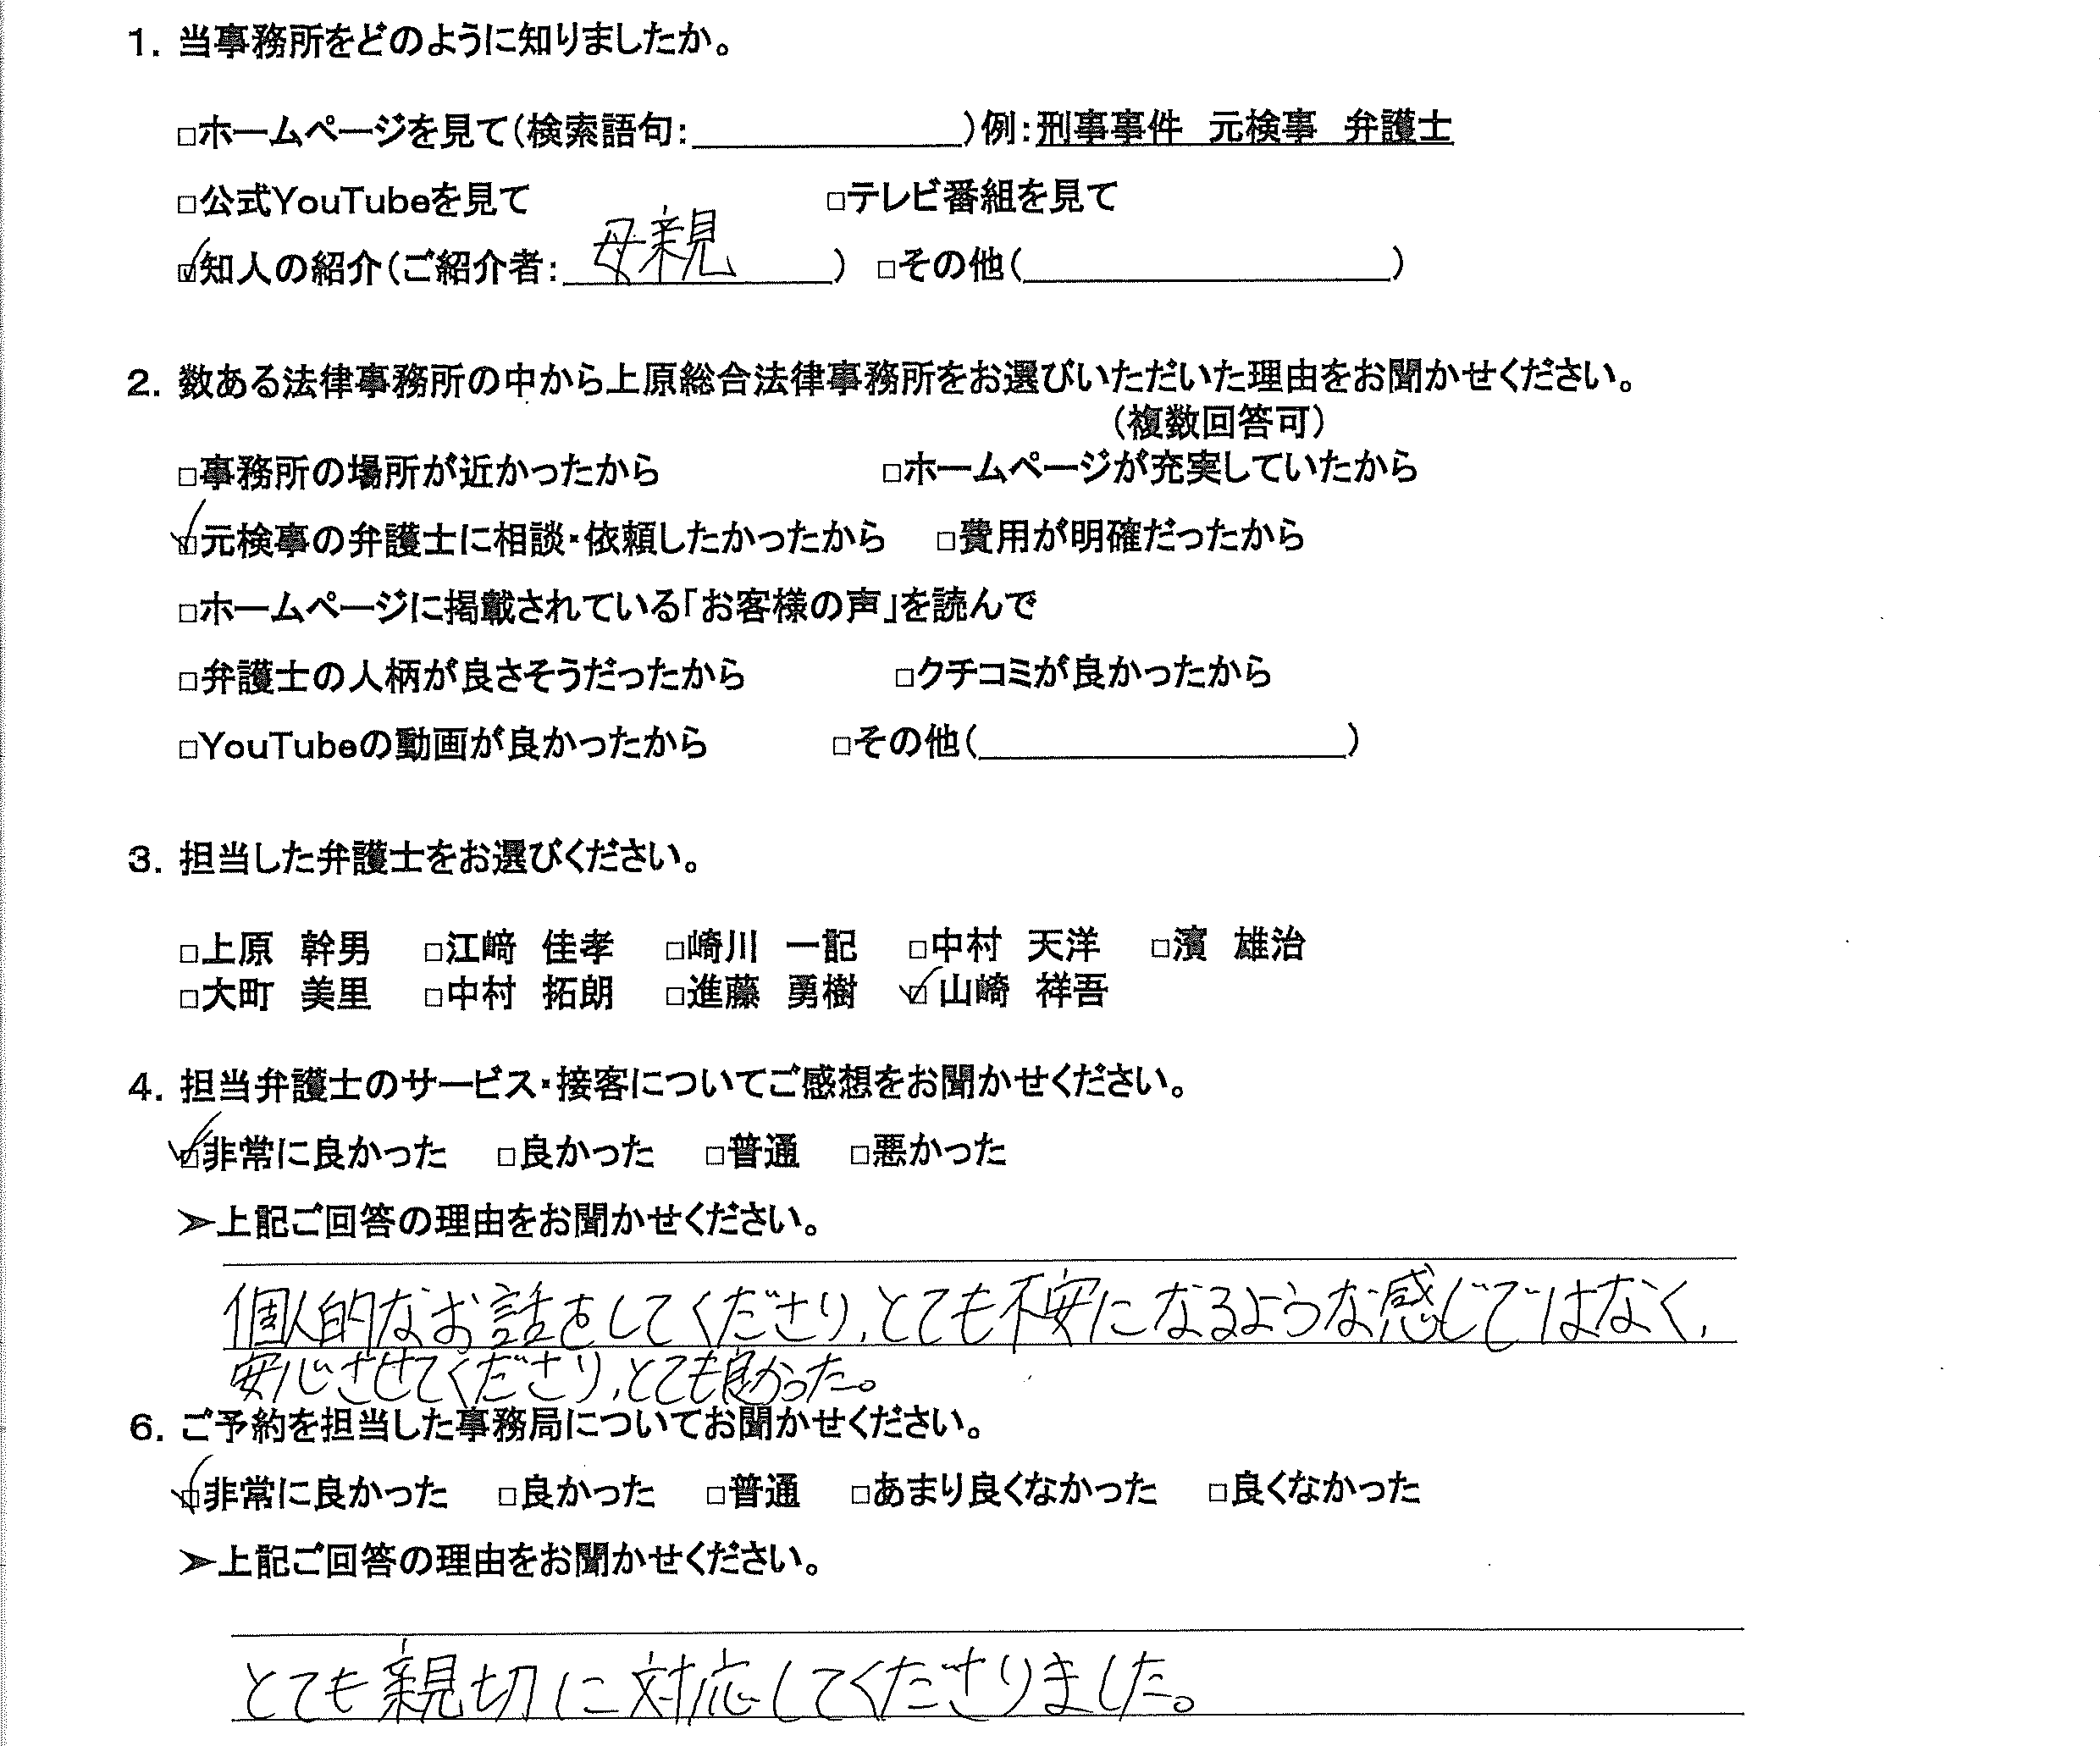 1. 当事務所をどのように知りましたか。
□ホームページを見て(検索語句:　　　　　　　)例:刑事事件　元検事　弁護士
□公式YouTubeを見て　　　　　□テレビ番組を見て
☑知人の紹介(ご紹介者: 母親　　)　□その他(　　　　　　　　　　)
2. 数ある法律事務所の中から上原総合法律事務所をお選びいただいた理由をお聞かせください。
(複数回答可)
□事務所の場所が近かったから　　　　　□ホームページが充実していたから
☑元検事の弁護士に相談・依頼したかったから　□費用が明確だったから
□ホームページに掲載されている「お客様の声」を読んで
□弁護士の人柄が良さそうだったから　　　　□クチコミが良かったから
□YouTubeの動画が良かったから　　　□その他(　　　　　　　　　　)
3. 担当した弁護士をお選びください。
□上原　幹男　□江﨑　佳孝　□崎川　一記　□中村　天洋　□濱　雄治
□大町　美里　□中村　拓朗　□進藤　勇樹　☑山崎　祥吾
4. 担当弁護士のサービス・接客についてご感想をお聞かせください。
☑非常に良かった　□良かった　□普通　□悪かった
➢上記ご回答の理由をお聞かせください。
個人的なお話をしてくださり、とても不安になるような感じではなく、
安心させてくださり、とても良かった。
6. ご予約を担当した事務局についてお聞かせください。
☑非常に良かった　□良かった　□普通　□あまり良くなかった　□良くなかった
➢上記ご回答の理由をお聞かせください。
とても親切に対応してくださりました。